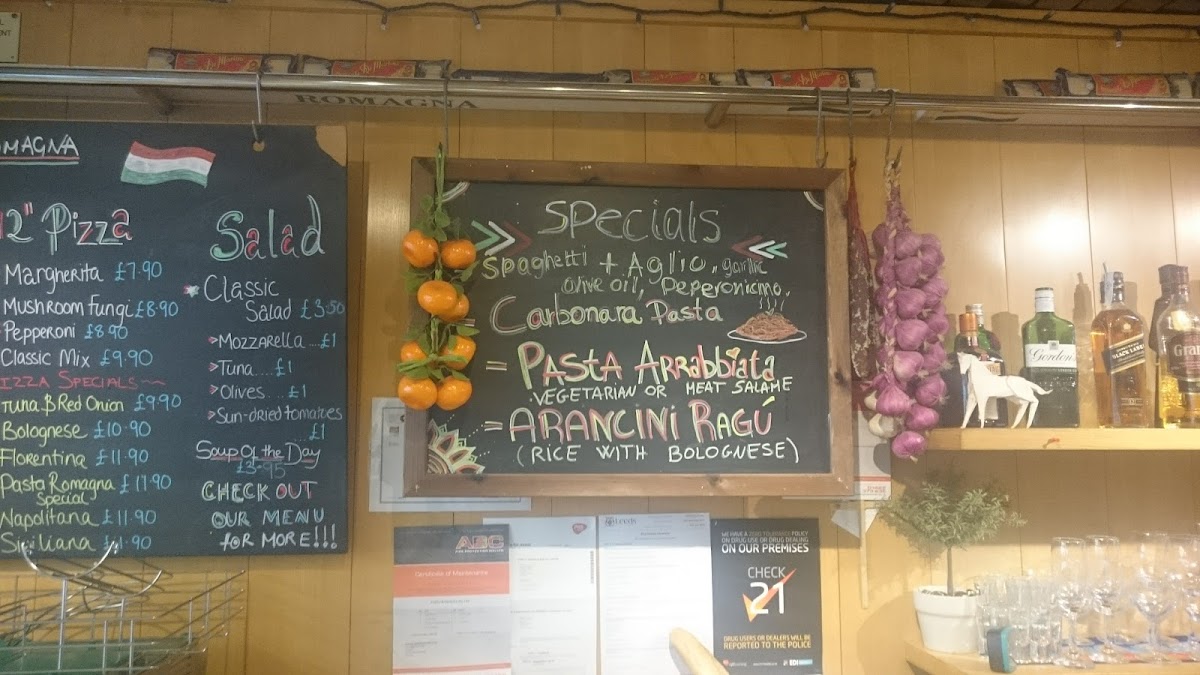 ROMAGNA
OMAGNA
12" Pizza
Margherita £7.90
Mushroom fungi £8.90
Pepperoni £8.90
Classic Mix £9.90
PIZZA SPECIALS
Tuna & Red Onion £9.90
Bolognese £10.90
Florentina £11.90
Pasta Romagna £11.90
Special
Napolitana £11.90
Siciliana £11.90
Salad
Classic
Salad £3.50
Mozzarella ....£1
Tuna....£1
Olives....£1
Sun-dried tomatoes
...£1
Soup Of the Day
£3.95
CHECK OUT
OUR MENU
for MORE!!!
Specials
Spaghetti + Aglio, garlic
olive oil, Peperoncino.
Carbonara Pasta
= PASTA ARRABBIATA
VEGETARIAN OR MEAT SALAME
= ARANCINI RAGÚ
(RICE WITH BOLOGNESE)
Gordon's
BLACK LABEL
Gran
ABC
Certificate of Maintenance
Leeds
WE HAVE A ZERO TOLERANCE POLICY
ON DRUG USE OR DRUG DEALING
ON OUR PREMISES
CHECK
21
DRUG USERS OR DEALERS WILL BE
REPORTED TO THE POLICE